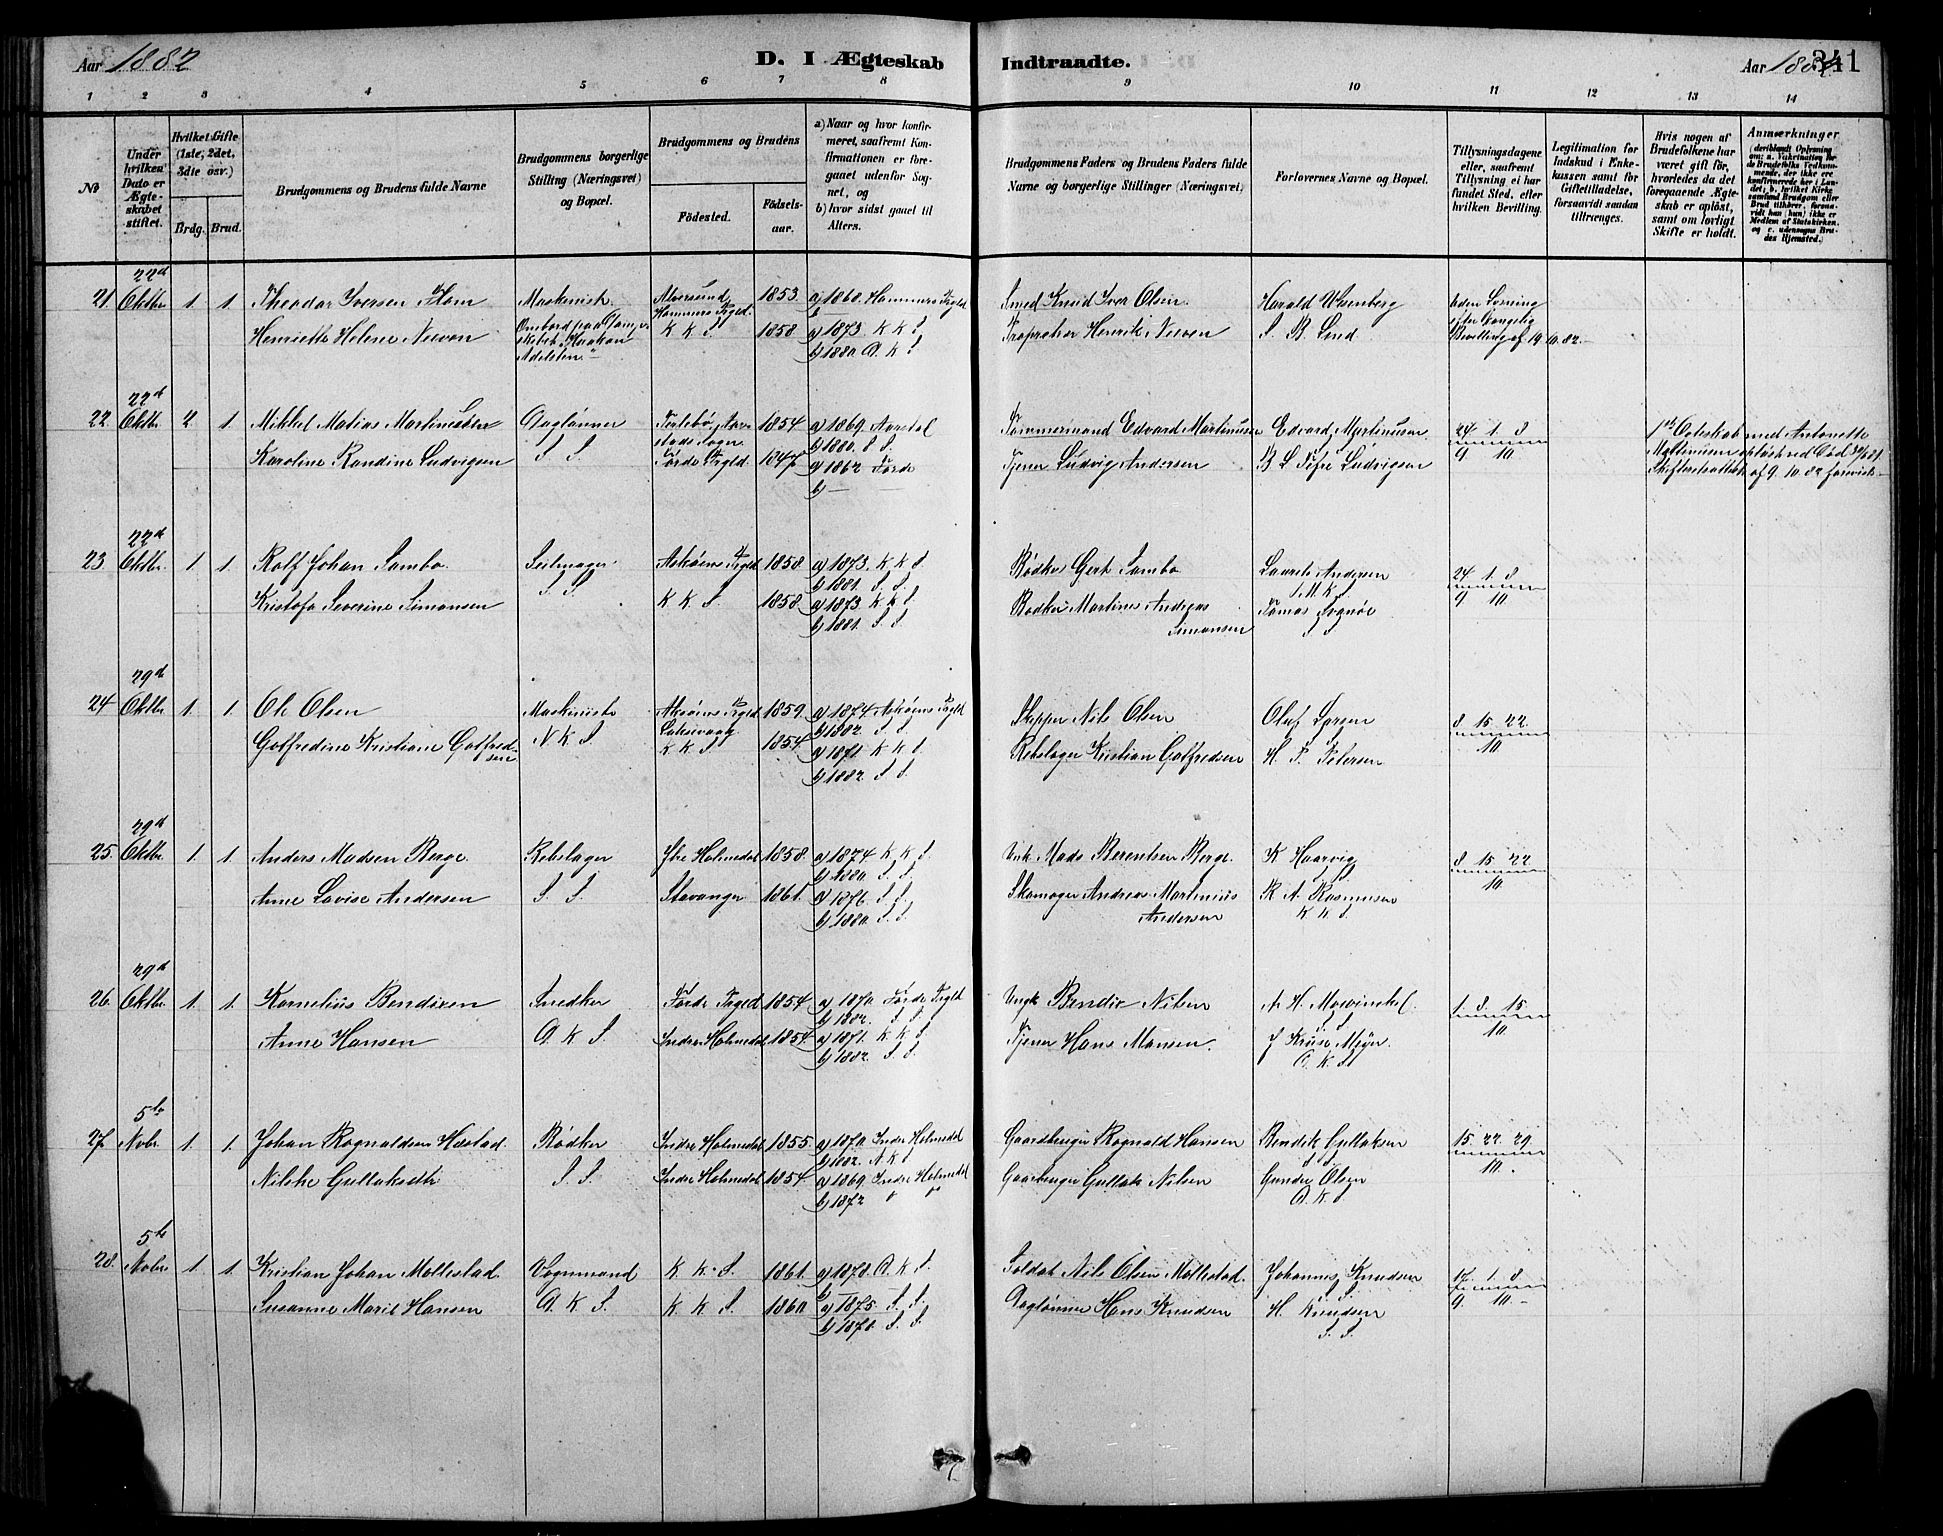 Aar 1882
D. I Ægteskab Indtraadte.
Aar 188
341
1 2 3 4 5 6 7 8 9 10 11 12 13 14
No
Under hvilken Dato er Ægteskabet stiftet.
Hvilket Gifte (1ste, 2det, 3die osv.)
Brdg. Brud.
Brudgommens og Brudens fulde Navne
Brudgommens borgerlige Stilling (Næringsvei) og Bopæl.
Brudgommens og Brudens
Födested.
Födselsaar.
a) Naar og hvor konfirmeret, saafremt Konfirmationen er foregaaet udenfor Sognet, og
b) hvor sidst gaaet til Alters.
Brudgommens Faders og Brudens Faders fulde Navne og borgerlige Stillinger (Næringsvei)
Forlovernes Navne og Bopæl.
Tillysningsdagene eller, saafremt Tillysning ei har fundet Sted, efter hvilken Bevilling.
Legitimation for Indskud i Enkekassen samt for Giftetilladelse, forsaavidt saadan tiltrænges.
Hvis nogen af Brudefolkene har været gift för, hvorledes da det foregaaende Ægteskab er oplöst, samt om lovligt Skifte er holdt.
Anmærkninger
22d
21. Oktbr. 1. 1. Theodor Iversen Hom Maskinist Alversund Hammers Prgld. 1853. a) 1868. Hammers Prgld b) — Smed Knud Iver Olsen Harald
Henriette Helene Neven Ombord paa Dampskibet "Haakon Adelsten" K K S 1858. a) 1873. K K S b) 1880 D. K S Proprietær Henrik Neven S. B. Lund Bevilling af 19.10.82.
22d
22. Oktbr. 2. 1. Mikkel Matias Martinussen Daglønner 1854 a) 1869. b) 1880. S S Tømmermand Edvard Martinusen Edvard Martinusen 24 1. 8
Karoline Randine Ludvigsen S S. Førde Prgld. 1847 a) 1862 Førde b) — Tjener Ludvig Andersen B L Ludvigsen 9 10.
1ste Ægteskab med Antonette Martinusen opløst ved Død
Skifteattest af 9. 10. 82 forevist
22d
23. Oktbr. 1. 1. Rolf Johan Sambo Seilmager Askøens Prgld 1858. a) 1873. K K S b) 1881. S. S. Bødker Gert Sambo Laurits Andersen 24 1. 8
Kristofa Severine Simonsen S. S. K K. S. 1858. a) 1873. K K S b) 1881. S S. Bødker Martines Andreas Simonsen Tomas S S 9 10.
29d
24 Oktbr. 1. 1. Ole Olsen Maskinist Askøens Prgld 1859. a) 1874 Askøens Prgld b) 1882 S S Skipper Nils Olsen Oluf 8 15. 22.
Gotfredine Kristiane Gotfredsen N K S. K K S. 1854. a) 1871 K K S. b) 1882. S S. Rebslager Kristian Gotfredsen H. Petersen 10
29d
25. Oktbr. 1. 1. Anders Madsen Berge. Rebslager Ytre Holmedal 1858. a) 1874 K K S. b) 1880. S S. Mads Berentsen Berge. K Haarvig 8 15 22
Anne Lovise Andersen S. S. Stavanger 1861. a) 1876. S S. b) 1880. S S. Skomager Andreas Martinius Andersen R A. Rasmusen K K S 10
29d
26. Oktbr. 1. 1. Kornelius Bendixen Snedker Førde Prgld 1854 a) 1870. Førde Prgld b) 1882. S S. Bendix Nilsen A. H. Mowinckel 1. 8. 15
Anne Hansen D. K S. Indre Holmedal 1854 a) 1871. K K S b) 1882. S S. Tjener Hans Monsen. J Kruse Meyer D. K. S. 10.
5te
27. Novbr. 1. 1. Johan Rognaldsen Hæstad Bødker Indre Holmedal 1855. a) 1870 Indre Holmedal b) 1882. N K S Gaardbruger Rognald Hansen Bendik Gullaksen 15. 22. 29.
Nilske Gullaksdtr S S. Indre Holmedal 1854 a) 1869. Indre Holmedal b) 1872 Gaardbruger Gullak Nilsen Gunder Olsen D. K. S 10.
5te
28. Novbr. 1. 1. Kristian Johan Mollestad Vognmand K K. S. 1861. a) 1878. D. K. S. b) — Soldat Nils Olsen Mollestad. Johannes Knudsen 17. 1. 8.
Susanne Marie Hansen D. K S. K K. S. 1860 a) 1875. S. S. b) 1878. S S. Daglønner Hans Knudsen H. Knudsen S. S. 9. 10.